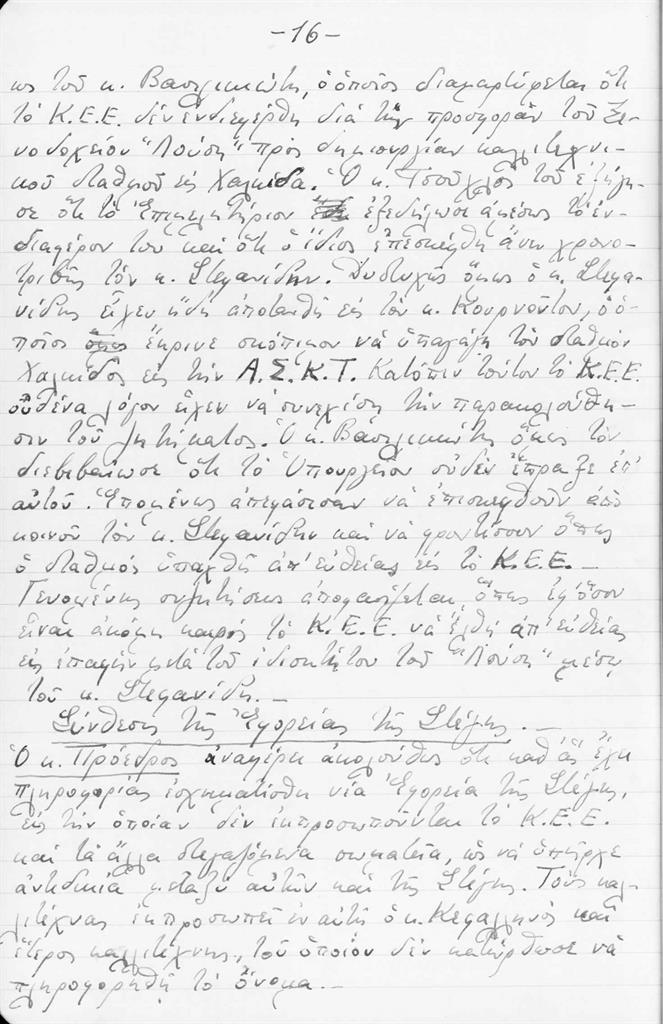 -16-
ως τοῦ κ. Βασιλικιώτη, ὁ ὁποῖος διαμαρτύρεται ὅτι
τό Κ.Ε.Ε. δέν ἐνδιεφέρθη διά τήν προσφοράν τοῦ Ξε-
νοδοχείου "Λούση" πρός δημιουργίαν καλλιτεχνι-
κοῦ σταθμοῦ εἰς Χαλκίδα. Ὁ κ. Τσοῦχλος τοῦ ἐξήγη-
σε ὅτι τό Ἐπιμελητήριον ἐξεδήλωσε ἀμέσως τό ἐν-
διαφέρον του καί ὅτι ὁ ἴδιος ἐπεσκέφθη ἄνευ χρονο-
τριβῆς τόν κ. Στεφανίδην. Δυστυχῶς ὅμως ὁ κ. Στεφα-
νίδης εἶχεν ἤδη ἀποταθῆ εἰς τόν κ. Κουρνοῦτον, ὁ ὁ-
ποῖος ἔκρινε σκόπιμον νά ὑπαγάγη τόν σταθμόν
Χαλκίδος εἰς τήν Α.Σ.Κ.Τ. Κατόπιν τούτου τό Κ.Ε.Ε.
οὐδένα λόγον εἶχεν νά συνεχίση τήν παρακολούθη-
σιν τοῦ ζητήματος. Ὁ κ. Βασιλικιώτης ὅμως τόν
διεβεβαίωσε ὅτι τό Ὑπουργεῖον οὐδέν ἔπραξε ἐπ'
αὐτοῦ. Ἑπομένως ἀπεφάσισαν νά ἐπισκεφθοῦν ἀπό
κοινοῦ τόν κ. Στεφανίδην καί νά φροντίσουν ὅπως
ὁ σταθμός ὑπαχθῆ ἀπ' εὐθείας εἰς τό Κ.Ε.Ε. -
Γενομένης συζητήσεως ἀποφασίζεται, ὅπως ἐφ' ὅσον
εἶναι ἀκόμη καιρός τό Κ.Ε.Ε. νά ἔλθη ἀπ' εὐθείας
εἰς ἐπαφήν μετά τοῦ ἰδιοκτήτου τοῦ "Λούση" μέσῳ
τοῦ κ. Στεφανίδη. -
Σύνθεσις τῆς Ἐφορείας τῆς Στέγης. -
Ὁ κ. Πρόεδρος ἀναφέρει ἀκολούθως ὅτι καθ' ἅς ἔχει
πληροφορίας ἐσχηματίσθη νέα Ἐφορεία τῆς Στέγης,
εἰς τήν ὁποίαν δέν ἐκπροσωποῦνται τό Κ.Ε.Ε.
καί τά ἄλλα στεγαζόμενα σωματεῖα, ὡς νά ὑπῆρχε
ἀντιδικία μεταξύ αὐτῶν καί τῆς Στέγης. Τούς καλ-
λιτέχνας ἐκπροσωπεῖ ἐν αὐτῇ ὁ κ. Κεφαλληνός καί
ἕτερος καλλιτέχνης, τοῦ ὁποίου δέν κατώρθωσε νά
πληροφορηθῆ τό ὄνομα. -